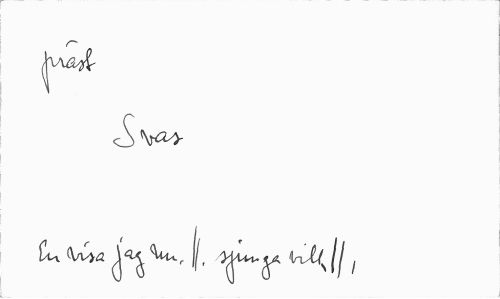 präst
Svas
En visa jag nu. ||. sjunga vill ||,